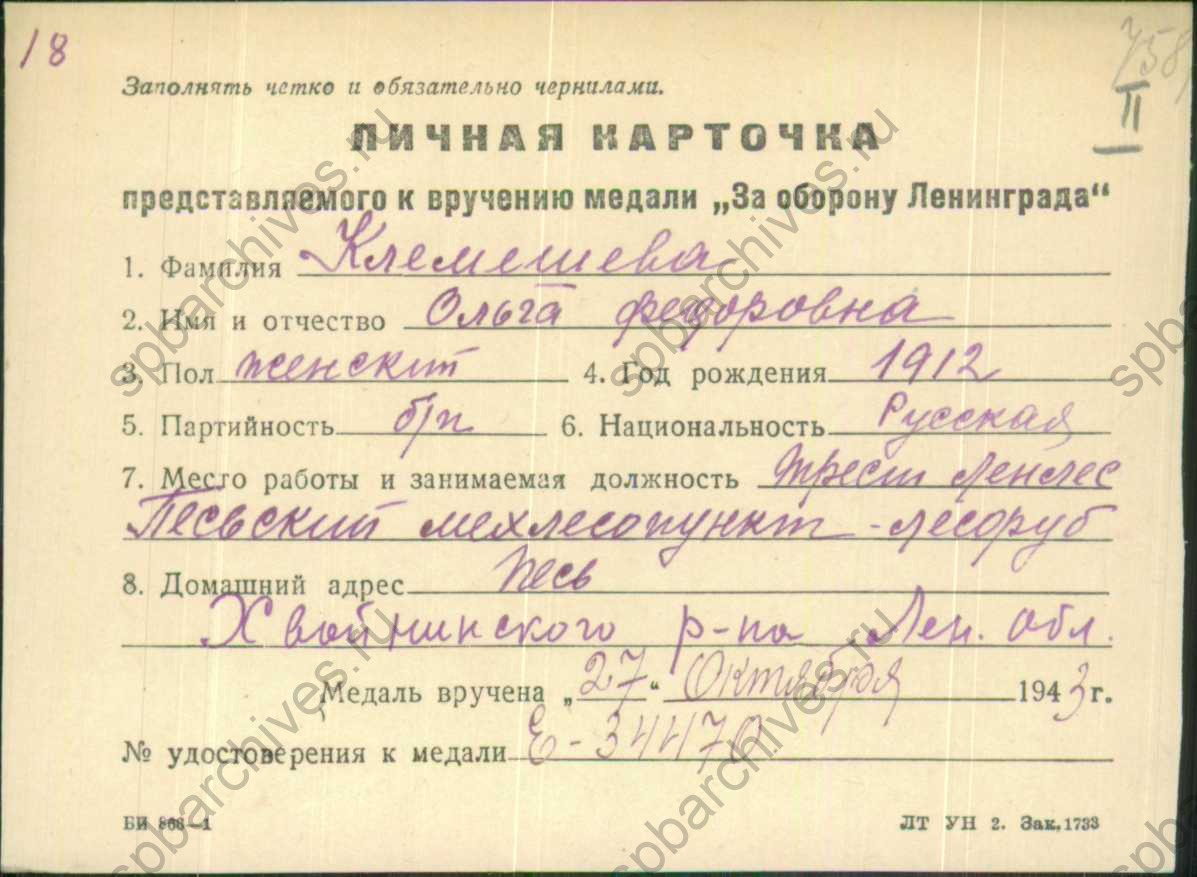 18
758
II
Заполнять четко и обязательно чернилами.
ЛИЧНАЯ КАРТОЧКА
представляемого к вручению медали „За оборону Ленинграда“
1. Фамилия Клемешева
2. Имя и отчество Ольга Федоровна
3. Пол женский 4. Год рождения 1912
5. Партийность б/п 6. Национальность Русская
7. Место работы и занимаемая должность Трест Ленлес
Песьский мехлесопункт - лесоруб
8. Домашний адрес Песь
Хвойнинского р-на Лен. обл.
Медаль вручена „27“ Октября 1943 г.
№ удостоверения к медали Е-34470
БИ 866—1 ЛТ УН 2. Зак. 1733
spbarchives.ru